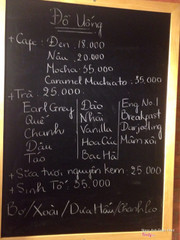 Đồ Uống
+ Cafe: Đen 18.000
Nâu 20.000
Mocha: 35.000
Caramel Machiato: 35.000
+ Trà: 25.000
Earl Grey Đào Eng No 1
Quế Nhài Breakfast
Chanh Vanilla Darjeeling
Dâu Hoa Cúc Mâm xôi
Táo Bạc Hà
+ Sữa tươi nguyên kem: 25.000
+ Sinh Tố 35.000
Bơ/Xoài/Dưa Hấu/Chanh leo